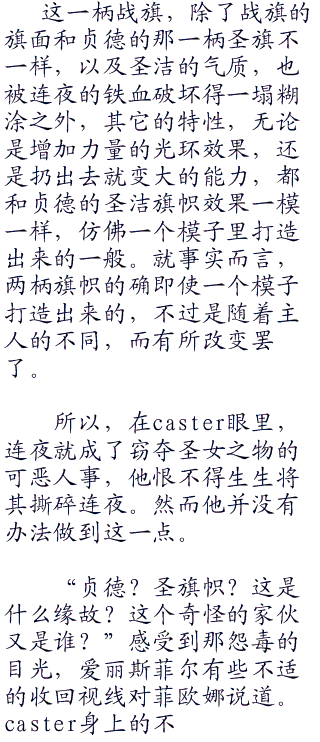 这一柄战旗，除了战旗的
旗面和贞德的那一柄圣旗不
一样，以及圣洁的气质，也
被连夜的铁血破坏得一塌糊
涂之外，其它的特性，无论
是增加力量的光环效果，还
是扔出去就变大的能力，都
和贞德的圣洁旗帜效果一模
一样，仿佛一个模子里打造
出来的一般。就事实而言，
两柄旗帜的确即使一个模子
打造出来的，不过是随着主
人的不同，而有所改变罢
了。
所以，在caster眼里，
连夜就成了窃夺圣女之物的
可恶人事，他恨不得生生将
其撕碎连夜。然而他并没有
办法做到这一点。
“贞德？圣旗帜？这是
什么缘故？这个奇怪的家伙
又是谁？”感受到那怨毒的
目光，爱丽斯菲尔有些不适
的收回视线对菲欧娜说道。
caster身上的不